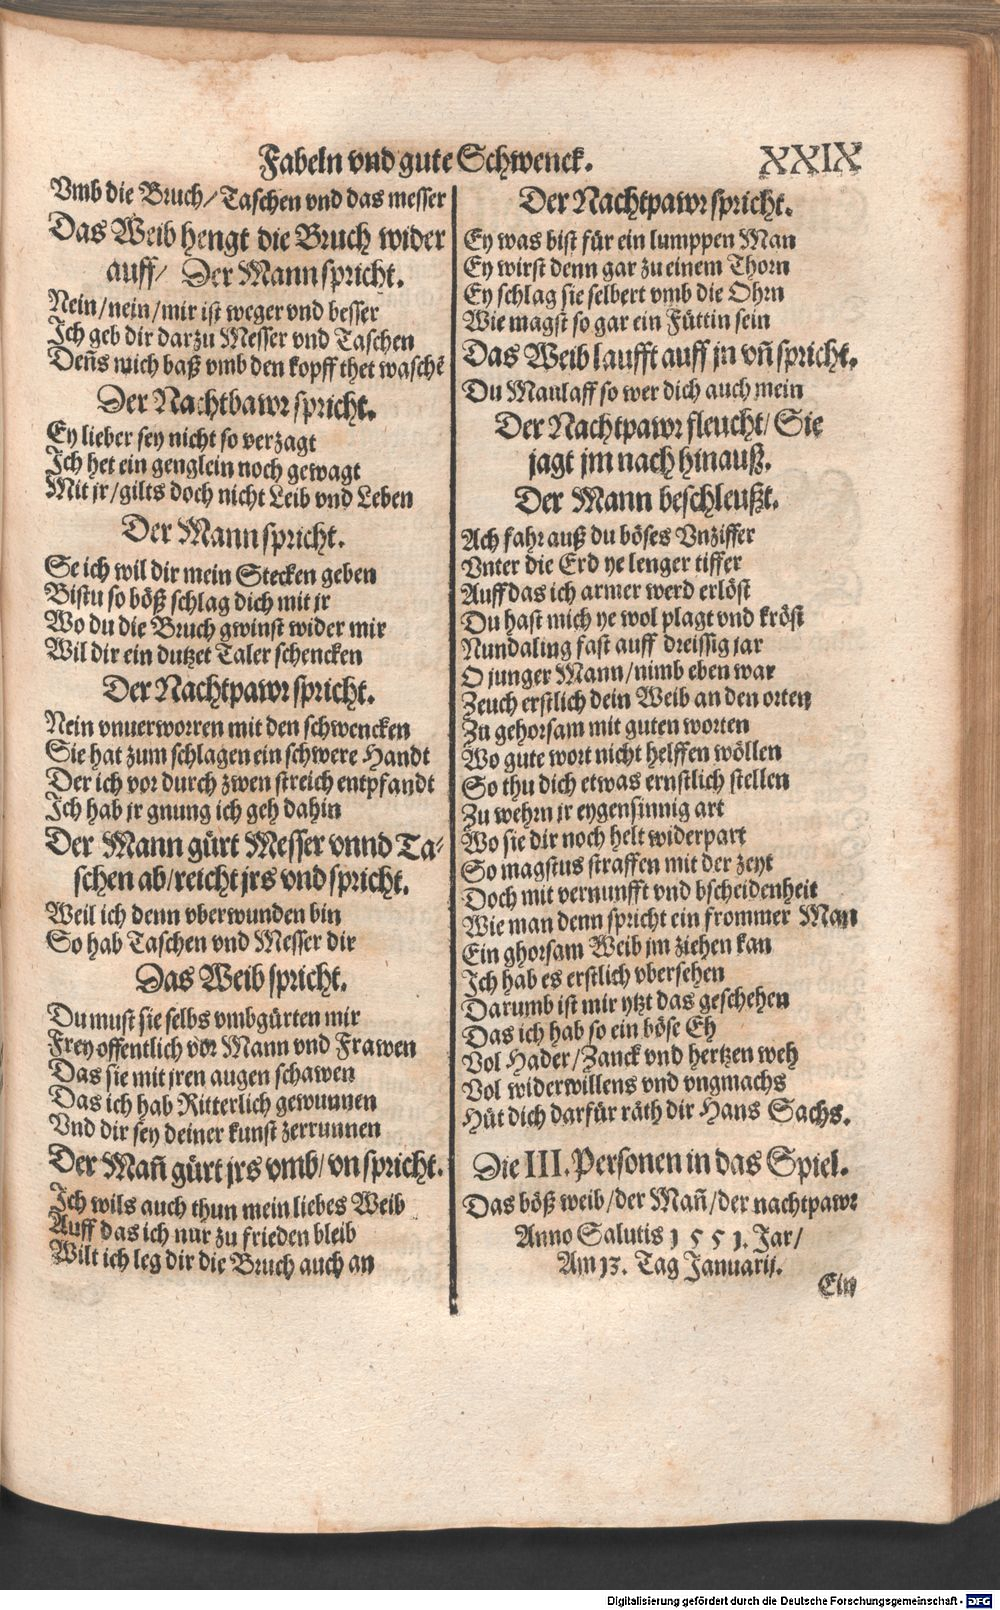 Fabeln vnd gute Schwenck. XXIX
Vmb die Bruch/Taschen vnd das messer
Das Weib hengt die Bruch wider
auff/ Der Mann spricht.
Nein/nein/mir ist weger vnd besser
Ich geb dir darzu Messer vnd Taschen
Deñs mich baß vmb den kopff thet waschẽ
Der Nachtbawr spricht.
Ey lieber sey nicht so verzagt
Ich het ein genglein noch gewagt
Mit jr/gilts doch nicht Leib vnd Leben
Der Mann spricht.
Se ich wil dir mein Stecken geben
Bistu so böß schlag dich mit jr
Wo du die Bruch gwinst wider mir
Wil dir ein dutzet Taler schencken
Der Nachtpawr spricht.
Nein vnuerworren mit den schwencken
Sie hat zum schlagen ein schwere Handt
Der ich vor durch zwen streich entpfandt
Ich hab jr gnung ich geh dahin
Der Mann gürt Messer vnnd Ta-
schen ab/reicht jrs vnd spricht.
Weil ich denn vberwunden bin
So hab Taschen vnd Messer dir
Das Weib spricht.
Du must sie selbs vmbgürten mir
Frey offentlich vor Mann vnd Frawen
Das sie mit jren augen schawen
Das ich hab Ritterlich gewunnen
Vnd dir sey deiner kunst zerrunnen
Der Mañ gürt jrs vmb/ vn spricht.
Ich wils auch thun mein liebes Weib
Auff das ich nur zu frieden bleib
Wilt ich leg dir die Bruch auch an
Der Nachtpawr spricht.
Ey was bist für ein lumppen Man
Ey wirst denn gar zu einem Thorn
Ey schlag sie selbert vmb die Ohrn
Wie magst so gar ein Füttin sein
Das Weib laufft auff jn vñ spricht.
Du Maulaff so wer dich auch mein
Der Nachtpawr fleucht/ Sie
jagt jm nach hinauß.
Der Mann beschleußt.
Ach fahr auß du böses Vnziffer
Vnter die Erd ye lenger tiffer
Auff das ich armer werd erlöst
Du hast mich ye wol plagt vnd kröst
Nundaling fast auff dreissig jar
O junger Mann/nimb eben war
Zeuch erstlich dein Weib an den orten
Zu gehorsam mit guten worten
Wo gute wort nicht helffen wöllen
So thu dich etwas ernstlich stellen
Zu wehrn jr eygensinnig art
Wo sie dir noch helt widerpart
So magstus straffen mit der zeyt
Doch mit vernunfft vnd bscheidenheit
Wie man denn spricht ein frommer Man
Ein ghorsam Weib jm ziehen kan
Ich hab es erstlich vbersehen
Darumb ist mir ytzt das geschehen
Das ich hab so ein böse Eh
Vol Hader/Zanck vnd hertzen weh
Vol widerwillens vnd vngmachs
Hüt dich darfür räth dir Hans Sachs.
Die III. Personen in das Spiel.
Das böß weib/der Mañ/der nachtpawr
Anno Salutis 1551. Jar/
Am 13. Tag Januarij.
Ein
Digitalisierung gefördert durch die Deutsche Forschungsgemeinschaft - DFG